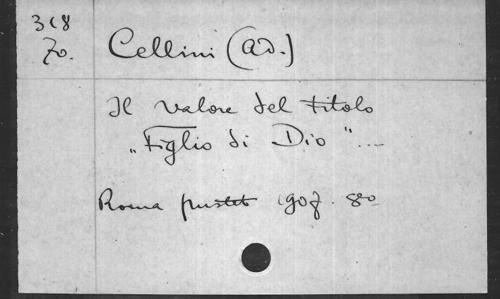 318
70.
Cellini (Ad.)
Il valore del titolo
„Figlio di Dio" ...
Roma pustet 1907. 8o